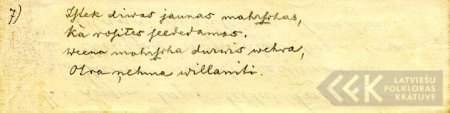 7) Istek diwas jaunas mahsṡchas,
Kâ rosites seededamas.
Weena mahsṡcha durwis wehra,
Otra ņehma willaniti.
LATVIEŠU
FOLKLORAS
KRĀTUVE